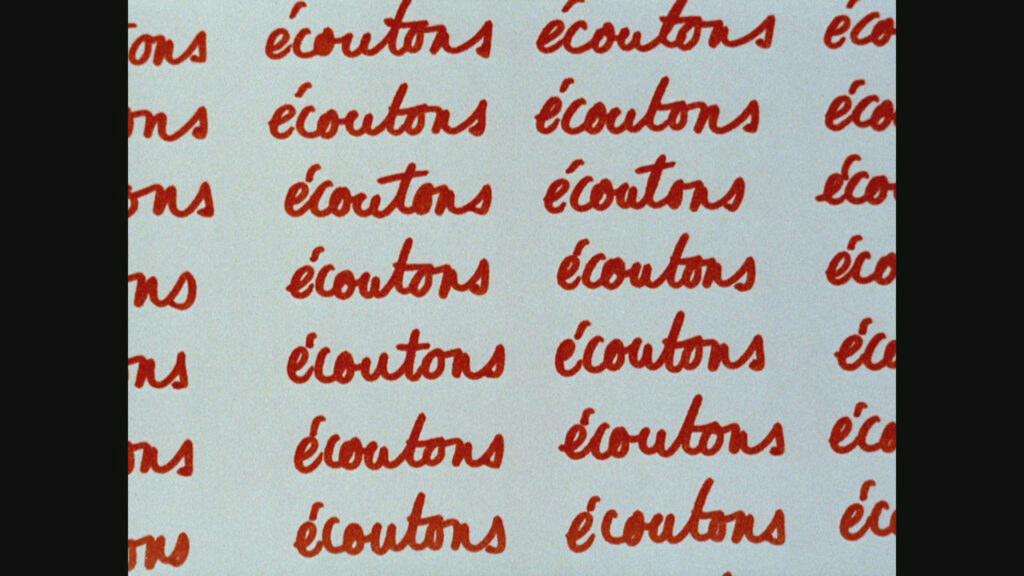 ons écoutons écoutons éco
ons écoutons écoutons éco
ons écoutons écoutons éco
ns écoutons écoutons éco
ns écoutons écoutons éco
ons écoutons écoutons éco
ons écoutons écoutons éc